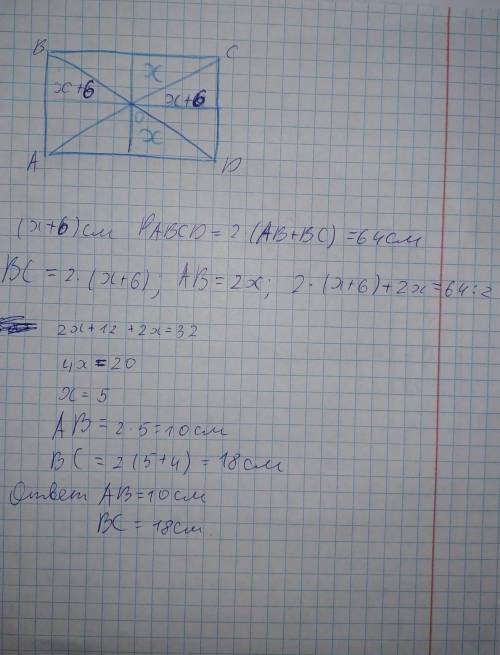 B C
x
x+6 x+6
O
x
A D
(x+6) см PABCD = 2 (AB+BC) = 64 см
BC = 2·(x+6); AB = 2x; 2·(x+6)+2x=64:2
2x+12+2x=32
4x=20
x=5
AB = 2·5=10 см
BC = 2(5+4) = 18 см
Ответ AB=10 см
BC = 18 см.